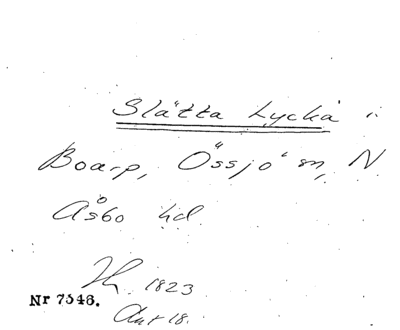 Slätta Lycka i
Boarp, Össjö sn, N
Åsbo hd.
1823
Nr 7546.
Akt 18.